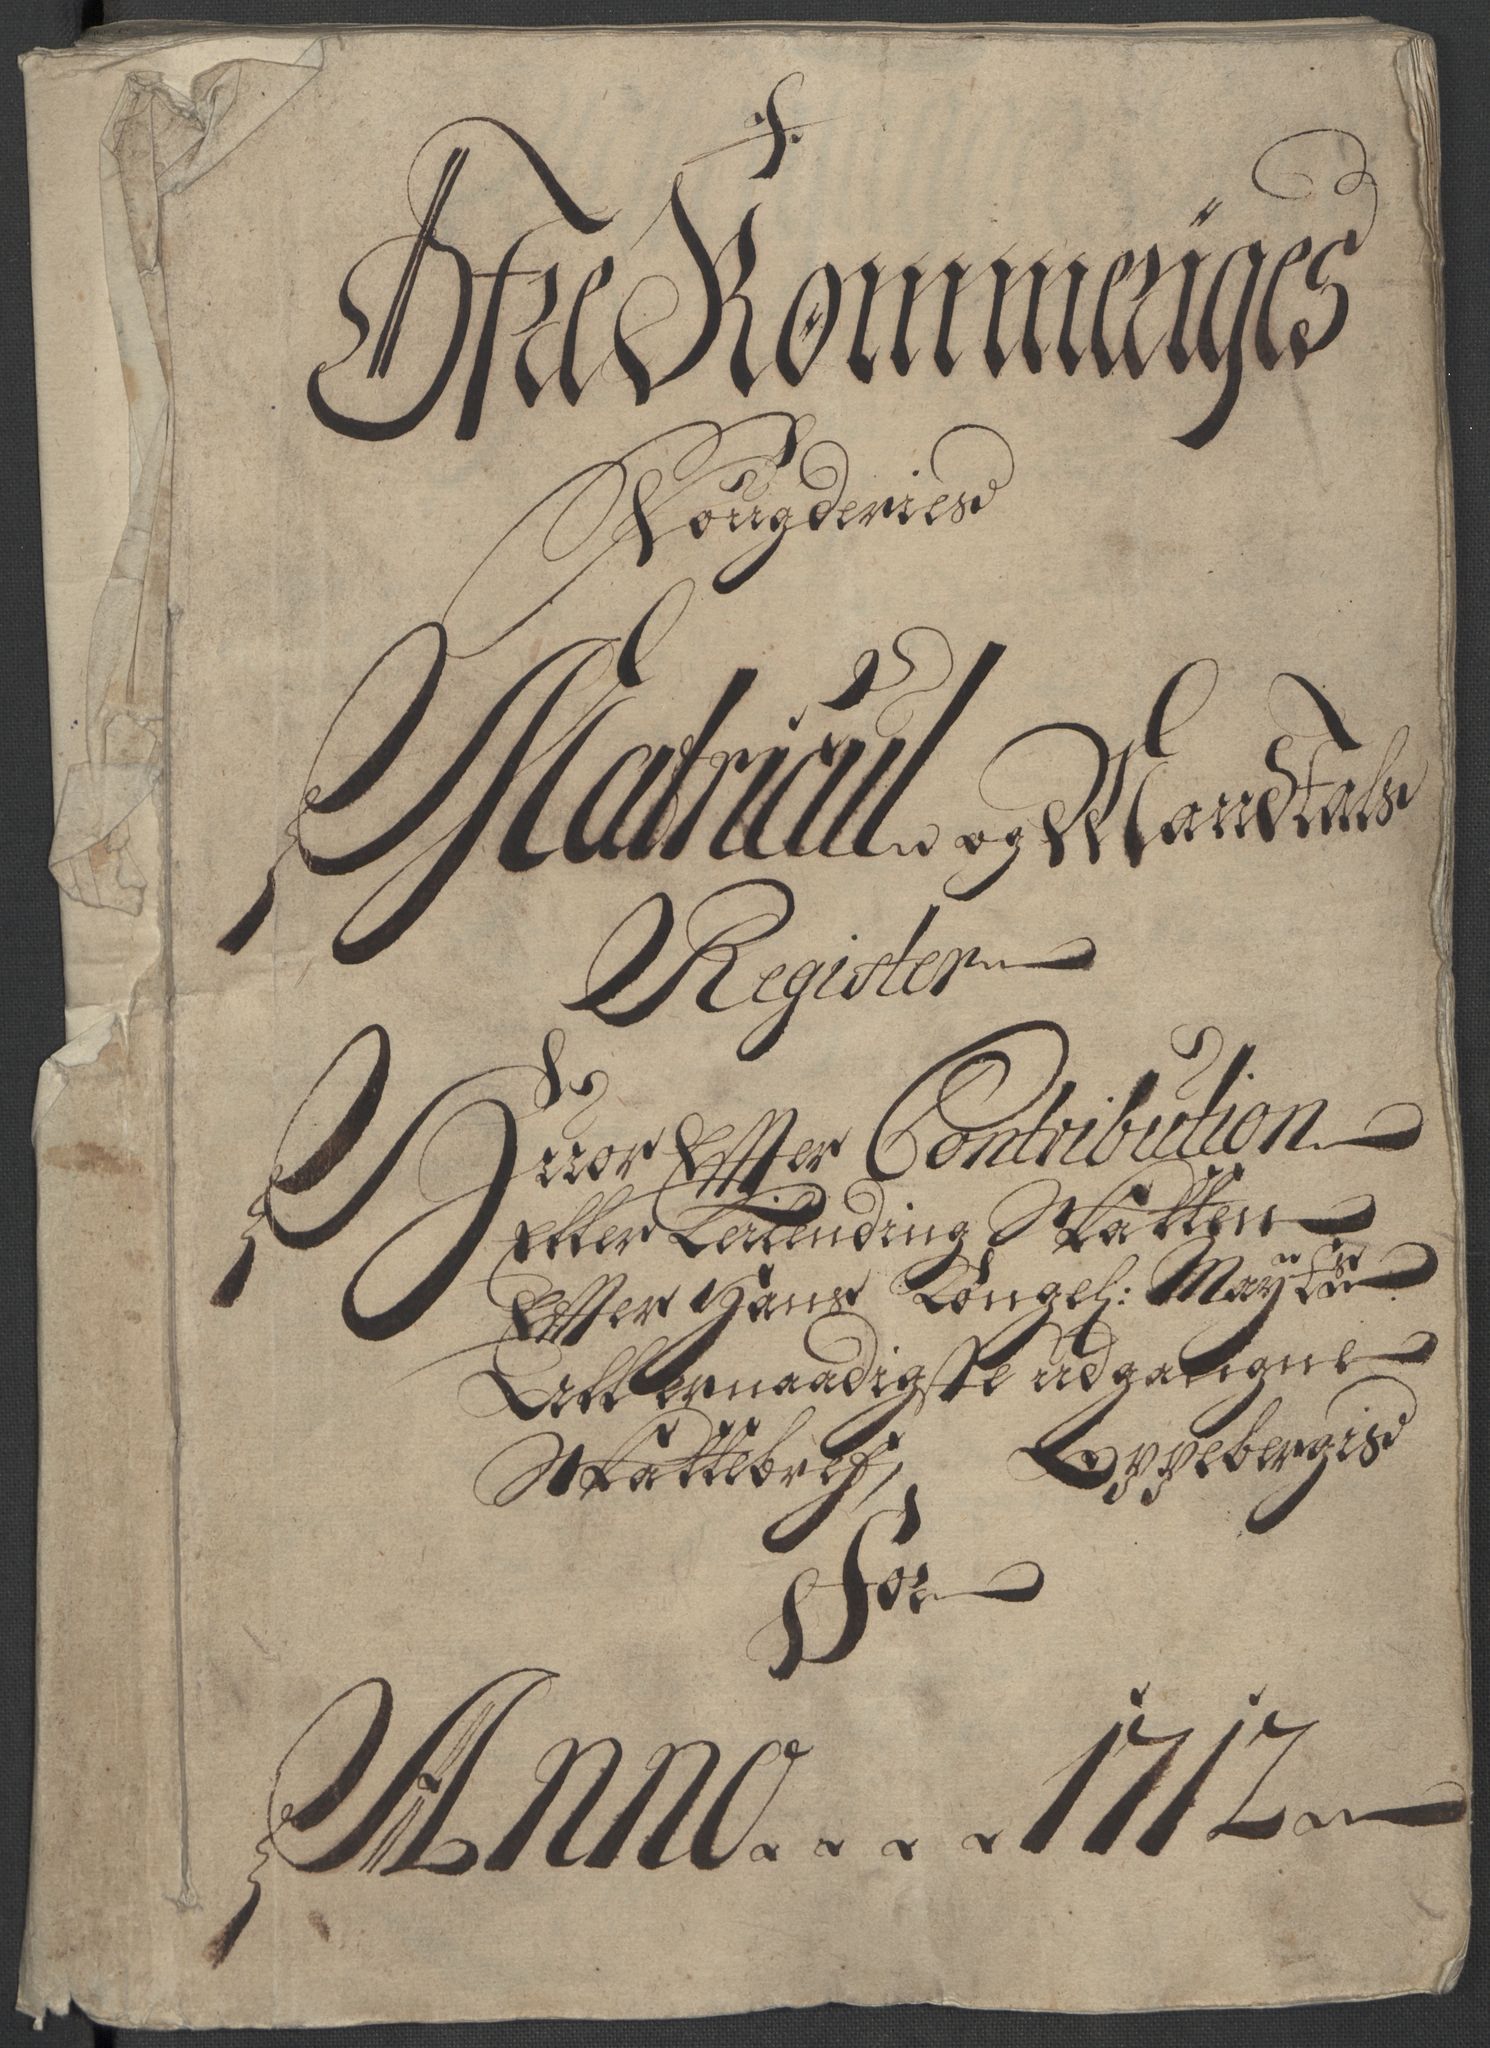 Øfre Rommeriges
Fougderies
Matricul og Mandtals
Register
Huor Effter Contribution
Eller Leilending Skatten
Effter Hans Kongel: May:ts
Allernaadigste udgangne
Skattebref, Oppebergis
For
Anno . . . . 1712